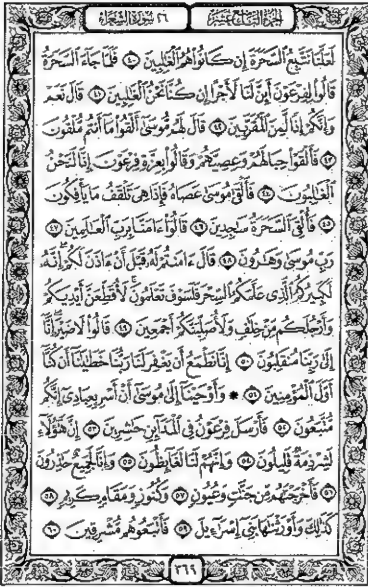 الجزء التاسع عشر ٢٦ سورة الشعراء
لَعَلَّنَا نَتَّبِعُ السَّحَرَةَ إِن كَانُوا۟ هُمُ الْغَٰلِبِينَ ٤٠ فَلَمَّا جَآءَ السَّحَرَةُ
قَالُوا۟ لِفِرْعَوْنَ أَئِنَّ لَنَا لَأَجْرًا إِن كُنَّا نَحْنُ الْغَٰلِبِينَ ٤١ قَالَ نَعَمْ
وَإِنَّكُمْ إِذًا لَّمِنَ الْمُقَرَّبِينَ ٤٢ قَالَ لَهُم مُّوسَىٰٓ أَلْقُوا۟ مَآ أَنتُم مُّلْقُونَ
٤٣ فَأَلْقَوْا۟ حِبَالَهُمْ وَعِصِيَّهُمْ وَقَالُوا۟ بِعِزَّةِ فِرْعَوْنَ إِنَّا لَنَحْنُ
الْغَٰلِبُونَ ٤٤ فَأَلْقَىٰ مُوسَىٰ عَصَاهُ فَإِذَا هِىَ تَلْقَفُ مَا يَأْفِكُونَ
٤٥ فَأُلْقِىَ السَّحَرَةُ سَٰجِدِينَ ٤٦ قَالُوٓا۟ ءَامَنَّا بِرَبِّ الْعَٰلَمِينَ ٤٧
رَبِّ مُوسَىٰ وَهَٰرُونَ ٤٨ قَالَ ءَامَنتُمْ لَهُۥ قَبْلَ أَنْ ءَاذَنَ لَكُمْ إِنَّهُۥ
لَكَبِيرُكُمُ الَّذِى عَلَّمَكُمُ السِّحْرَ فَلَسَوْفَ تَعْلَمُونَ لَأُقَطِّعَنَّ أَيْدِيَكُمْ
وَأَرْجُلَكُم مِّنْ خِلَٰفٍ وَلَأُصَلِّبَنَّكُمْ أَجْمَعِينَ ٤٩ قَالُوا۟ لَا ضَيْرَ إِنَّآ
إِلَىٰ رَبِّنَا مُنقَلِبُونَ ٥٠ إِنَّا نَطْمَعُ أَن يَغْفِرَ لَنَا رَبُّنَا خَطَٰيَٰنَآ أَن كُنَّآ
أَوَّلَ الْمُؤْمِنِينَ ٥١ * وَأَوْحَيْنَآ إِلَىٰ مُوسَىٰٓ أَنْ أَسْرِ بِعِبَادِىٓ إِنَّكُم
مُّتَّبَعُونَ ٥٢ فَأَرْسَلَ فِرْعَوْنُ فِى الْمَدَآئِنِ حَٰشِرِينَ ٥٣ إِنَّ هَٰٓؤُلَآءِ
لَشِرْذِمَةٌ قَلِيلُونَ ٥٤ وَإِنَّهُمْ لَنَا لَغَآئِظُونَ ٥٥ وَإِنَّا لَجَمِيعٌ حَٰذِرُونَ
٥٦ فَأَخْرَجْنَٰهُم مِّن جَنَّٰتٍ وَعُيُونٍ ٥٧ وَكُنُوزٍ وَمَقَامٍ كَرِيمٍ ٥٨
كَذَٰلِكَ وَأَوْرَثْنَٰهَا بَنِىٓ إِسْرَٰٓءِيلَ ٥٩ فَأَتْبَعُوهُم مُّشْرِقِينَ ٦٠
٣٦٩